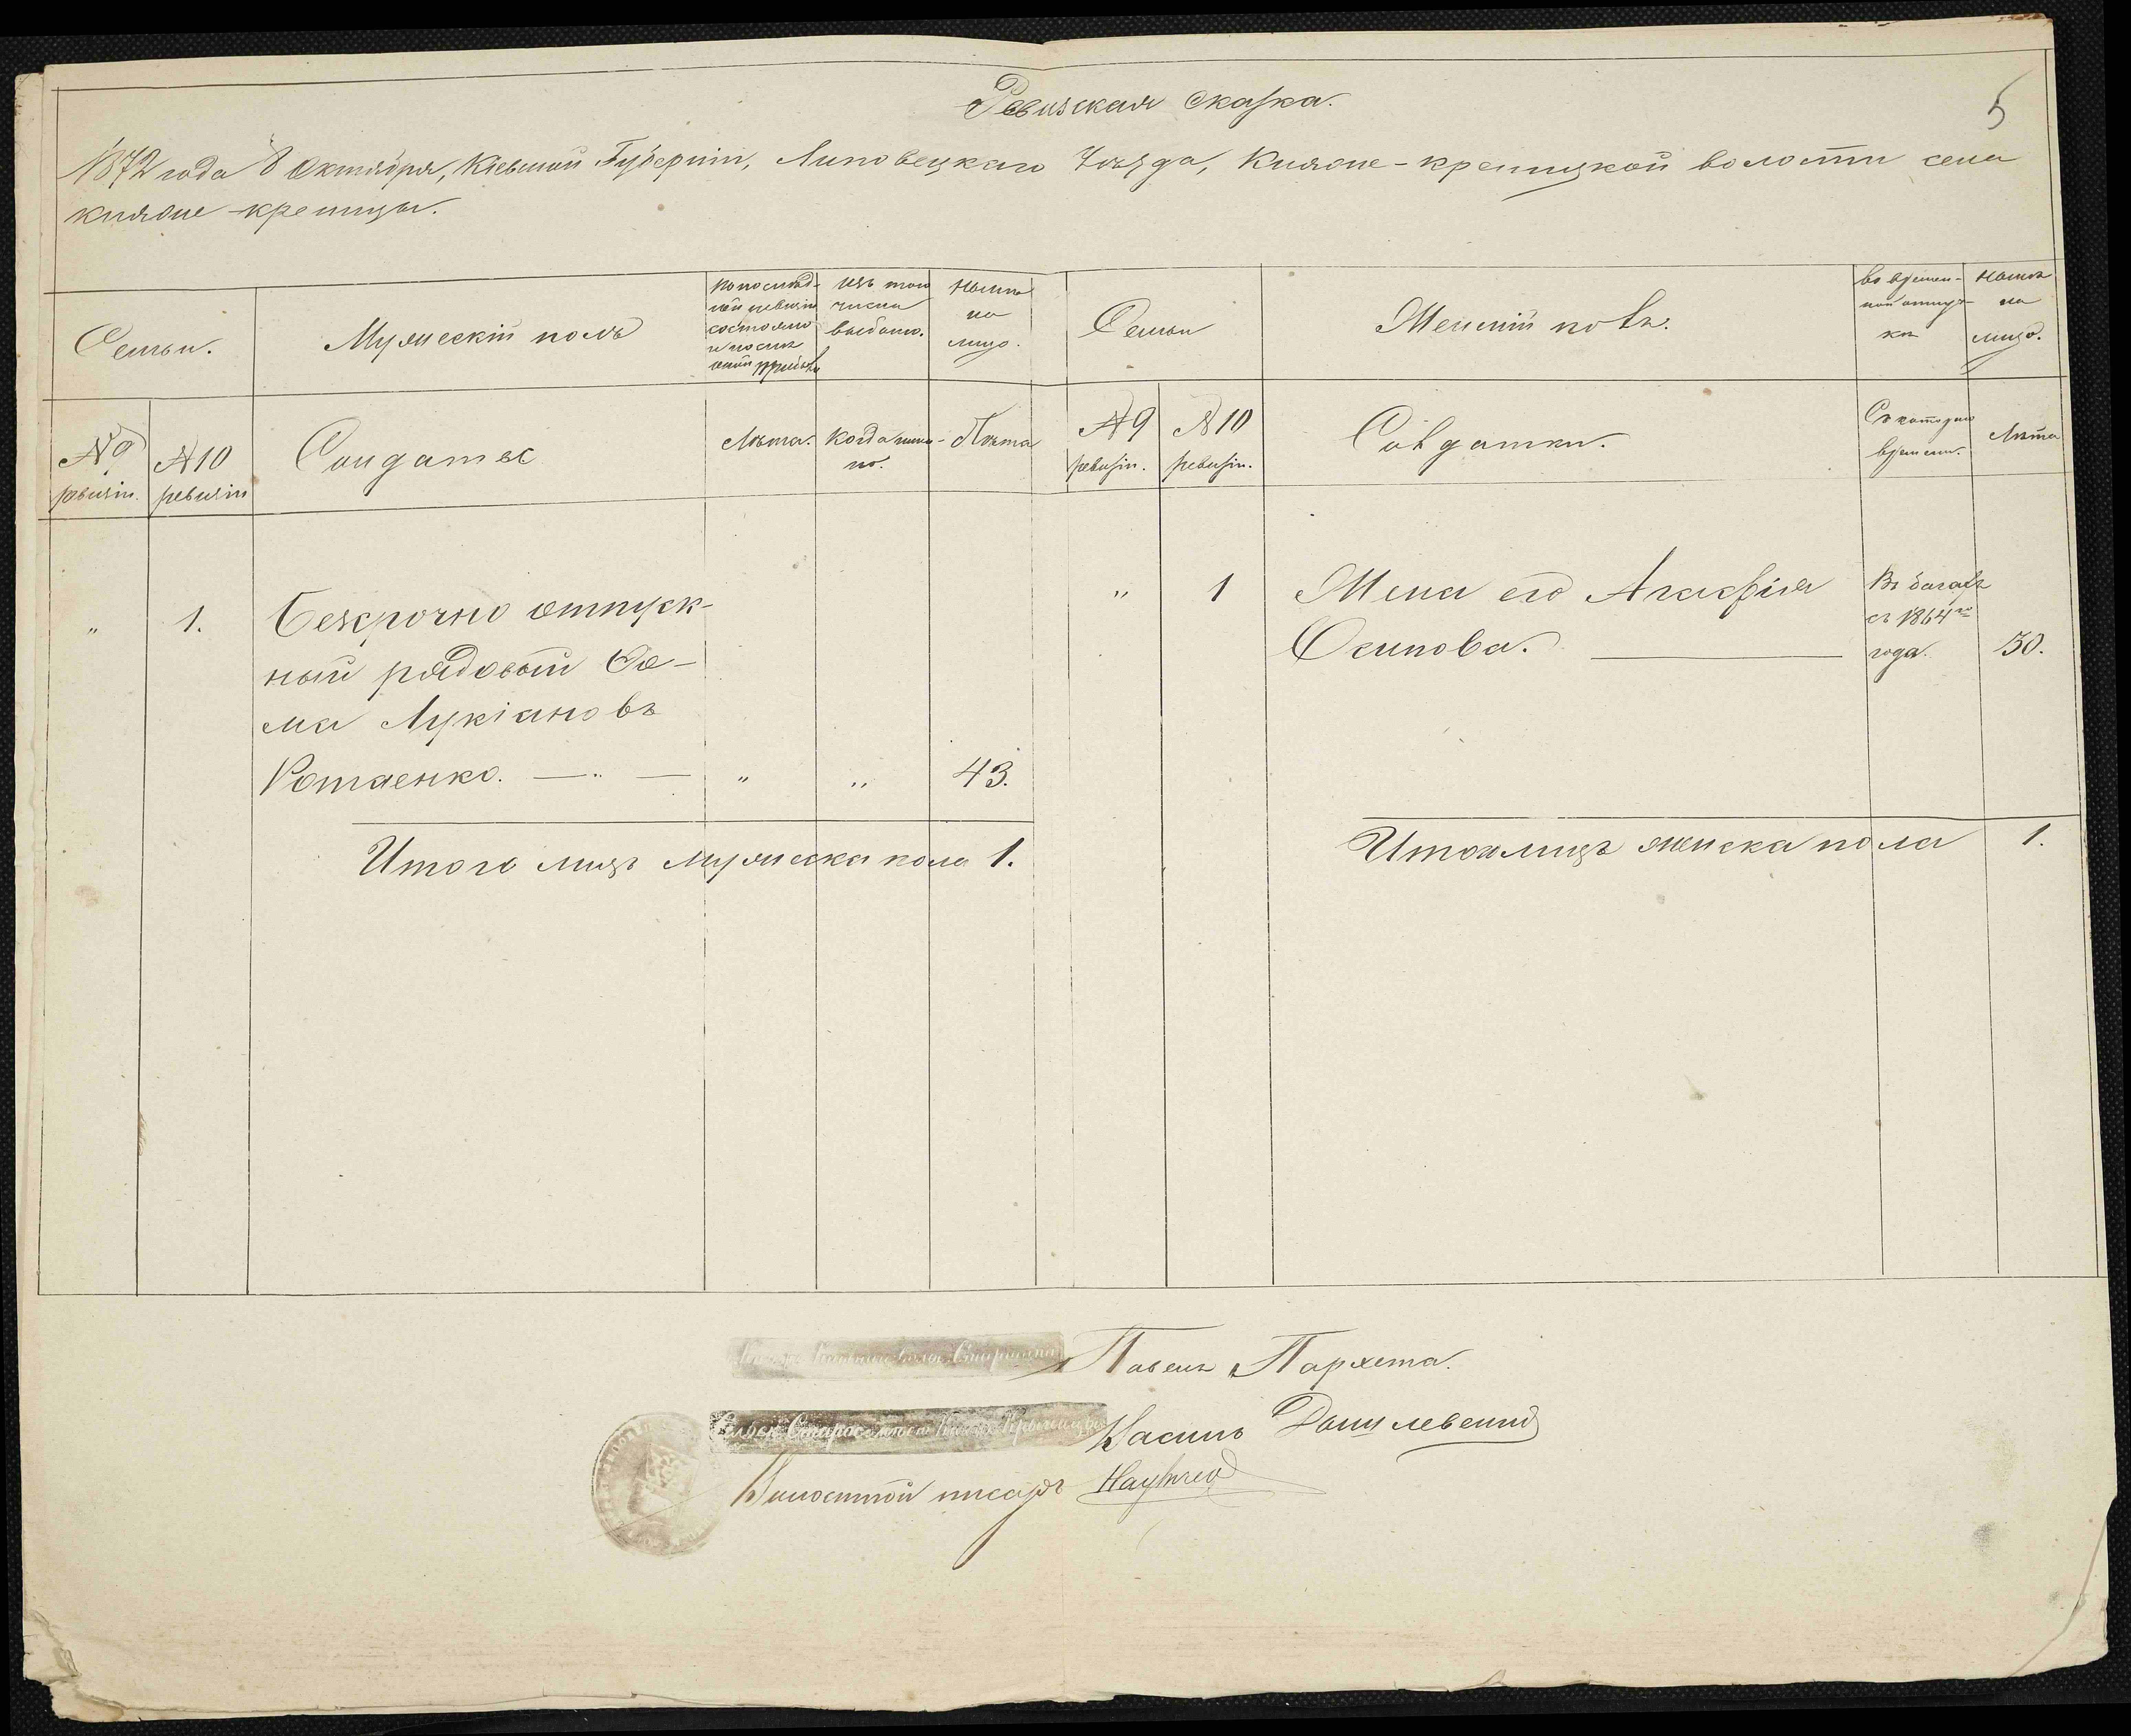 Ревизская Сказка.
5
1872 года 8 Октября, Кіевской Губерніи, Липовецкаго Уѣзда, Княже-креницкой волости села
княже-креницы.
Семьи.
Мужескій полъ
По послѣд-
ней ревизіи
состояло
и послѣ
оной прибыло
Изъ того
числа
выбыло.
Нынѣ
на
лицо.
Семьи
Женскій полъ.
Во времен-
ной отлуч-
кѣ
Нынѣ
на
лицо.
№ 9
ревизіи.
№ 10
ревизіи
Солдаты
Лѣта.
Когда имен-
но.
Лѣта
№ 9
ревизіи.
№ 10
ревизіи.
Солдатки.
Съ котораго
времени.
Лѣта
" 1. Безсрочно отпуск-
ный рядовой Фо-
ма Лукіановъ
Ротаенко. — " — " " 43.
Итого лицъ мужеска пола 1.
" 1 Жена его Агафія
Осипова.
съ 1864го
года.
30.
Итого лицъ женска пола 1.
Старшина Павелъ Пархета.
Сельск. Староста Княже Крыницы Василь Данилевскій
Волостной писарь